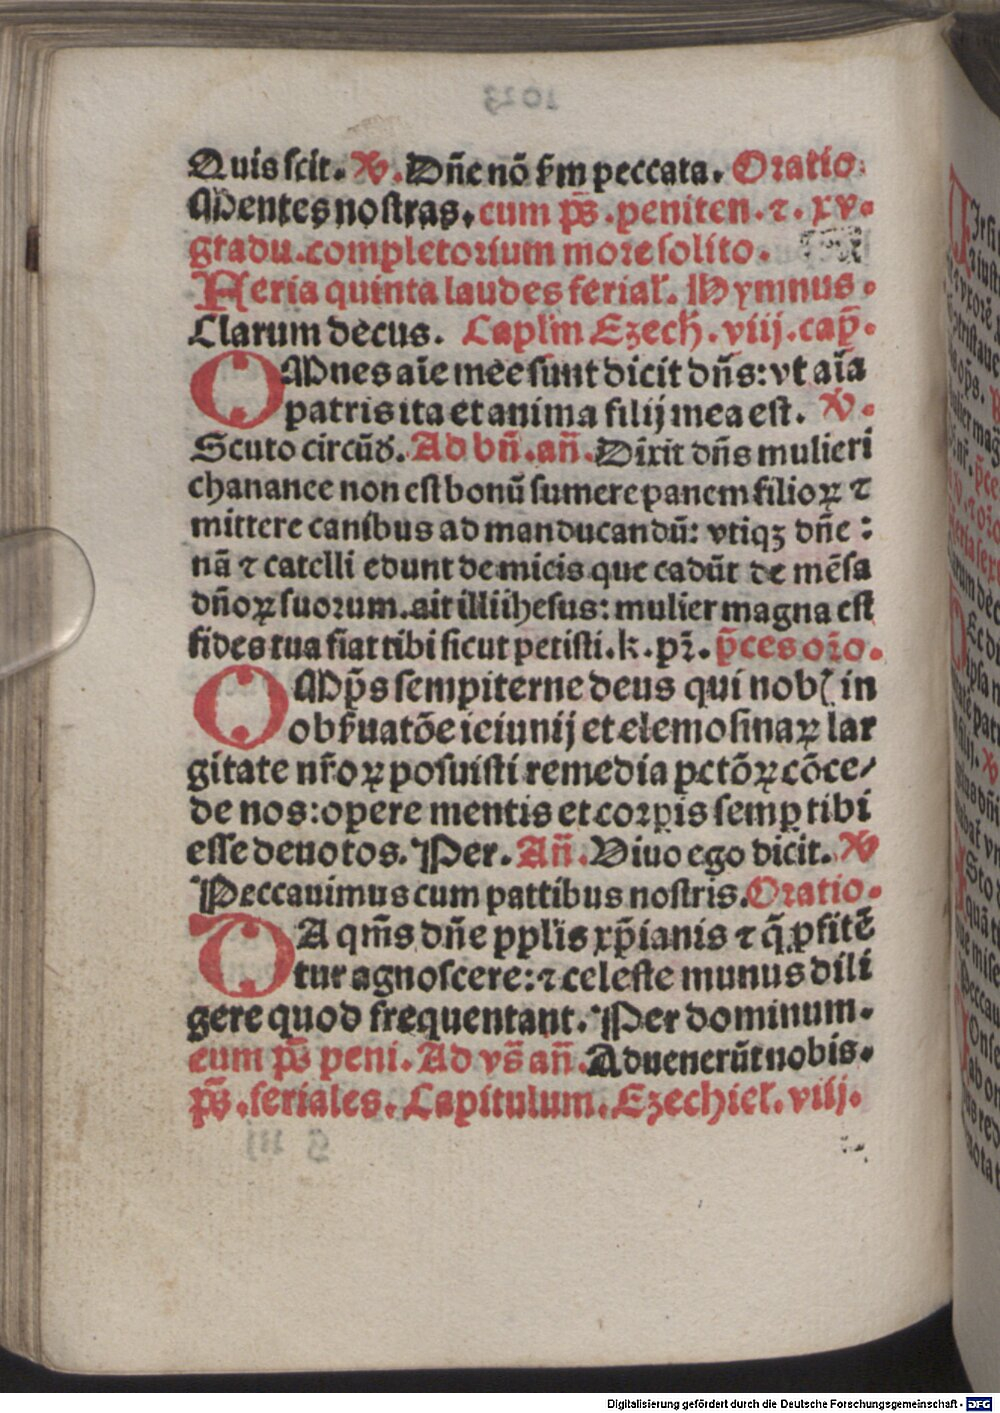 Quis scit. ꝟ. Dñe nõ ẜm peccata. Oratio.
Mentes nostras. cum pš. peniten. ⁊. xv.
gradu. completorium more solito.
Feria quinta laudes ferial̉. Hymnus.
Clarum decus. Capl̃m Ezech̉. viij. cap̃.
OMnes aĩe mee sunt dicit dñs: vt aĩa
patris ita et anima filij mea est. ꝟ.
Scuto circũd̉. Ad bñ. añ. Dixit dñs mulieri
chananee non est bonũ sumere panem filioꝝ ⁊
mittere canibus ad manducandũ: vtiqꝫ dñe:
nã ⁊ catelli edunt de micis que cadũt de mẽsa
dñoꝝ suorum. ait illi ihesus: mulier magna est
fides tua fiat tibi sicut petisti. k. pꝛ̃. p̃ces oꝛ̃o.
OMp̃s sempiterne deus qui nob̉ in
obẜuatõe ieiunij et elemosinaꝝ lar
gitate nr̃oꝝ posuisti remedia pctõꝝ cõce/
de nos: opere mentis et corꝑis semꝑ tibi
esse deuotos. Per. Añ. Viuo ego dicit. ꝟ
Peccauimus cum pattibus nostris. Oratio.
DA qm̃s dñe ppl̃is xp̃ianis ⁊ q̃ ꝓfitẽ
tur agnoscere: ⁊ celeste munus dili
gere quod frequentant. Per dominum.
cum pš peni. Ad vš añ. Aduenerũt nobis.
pš. feriales. Capitulum. Ezechiel̉. viij.
Digitalisierung gefördert durch die Deutsche Forschungsgemeinschaft - DFG